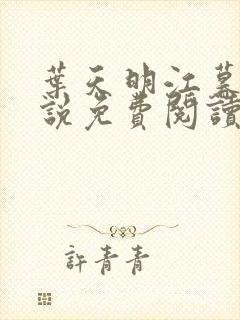 葉天明江慕
說免費閱讀
許青青